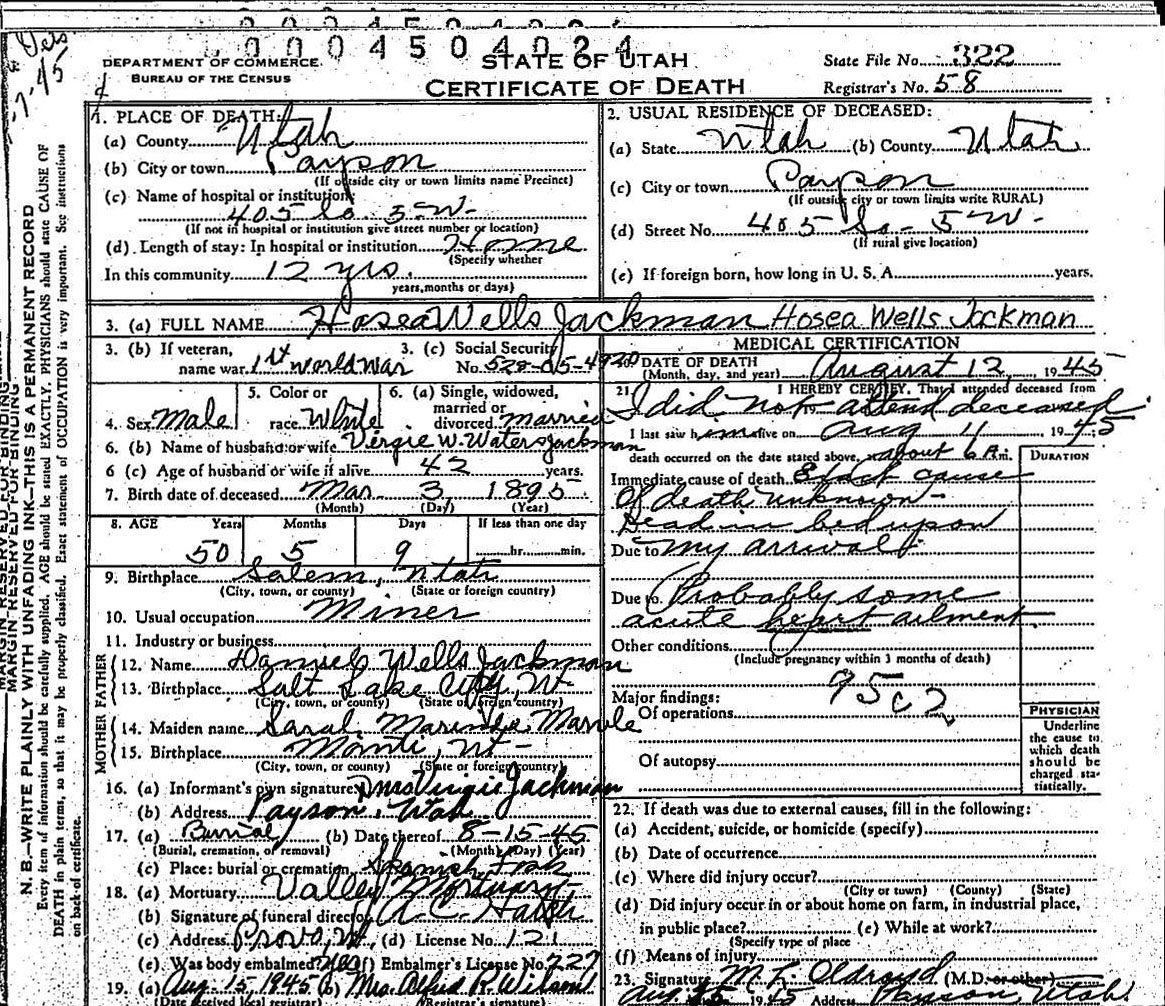 0 0 0 4 5 0 4 0 2 4
DEPARTMENT OF COMMERCE
BUREAU OF THE CENSUS
STATE OF UTAH
CERTIFICATE OF DEATH
State File No. 322
Registrar's No. 58
MARGIN RESERVED FOR BINDING
N. B.—WRITE PLAINLY WITH UNFADING INK—THIS IS A PERMANENT RECORD
Every item of information should be carefully supplied. AGE should be stated EXACTLY. PHYSICIANS should state CAUSE OF
DEATH in plain terms, so that it may be properly classified. Exact statement of OCCUPATION is very important. See instructions
on back of certificate.
1. PLACE OF DEATH:
(a) County Utah
(b) City or town Payson
(If outside city or town limits name Precinct)
(c) Name of hospital or institution:
405 So. 5 W-
(If not in hospital or institution give street number or location)
(d) Length of stay: In hospital or institution Home
(Specify whether
In this community 12 yrs.
years, months or days)
2. USUAL RESIDENCE OF DECEASED:
(a) State Utah (b) County Utah
(c) City or town Payson
(If outside city or town limits write RURAL)
(d) Street No. 405 So - 5 W-
(If rural give location)
(e) If foreign born, how long in U. S. A. years.
3. (a) FULL NAME Hosea Wells Jackman Hosea Wells Jackman
3. (b) If veteran,
name war 1st world war
3. (c) Social Security
No. 528-05-4920
4. Sex Male
5. Color or
race White
6. (a) Single, widowed,
married or
divorced married
6. (b) Name of husband or wife Virgie W. Waters Jackman
6 (c) Age of husband or wife if alive 42 years.
7. Birth date of deceased Mar- 3, 1895
(Month) (Day) (Year)
8. AGE Years Months Days If less than one day
50 5 9 hr. min.
9. Birthplace Salem, Utah
(City, town, or county) (State or foreign country)
10. Usual occupation Miner
11. Industry or business
FATHER
12. Name Wells Jackman
13. Birthplace Salt Lake City, Ut
(City, town, or county) (State or foreign country)
MOTHER
14. Maiden name Sarah
15. Birthplace Manti, Ut -
(City, town, or county) (State or foreign country)
16. (a) Informant's own signature Mrs Virgie Jackman
(b) Address Payson, Utah
17. (a) Burial (b) Date thereof 8-15-45
(Burial, cremation, or removal) (Month) (Day) (Year)
(c) Place: burial or cremation Spanish Fork
18. (a) Mortuary Valley Mortuary-
(b) Signature of funeral director A. C.
(c) Address Provo, Ut, (d) License No. 121
(e). Was body embalmed? Yes (f) Embalmer's License No. 227
19. (a) Aug 15, 1945 (b) Mrs. Alfred R. Wilson
(Date received local registrar) (Registrar's signature)
MEDICAL CERTIFICATION
20. DATE OF DEATH
(Month, day, and year) August 12, 1945
21. I HEREBY CERTIFY, That I attended deceased from
I did not attend deceased
I last saw him alive on Aug 4 1945
death occurred on the date stated above, at about 6 A m.
DURATION
Immediate cause of death Exact cause
Of death unknown-
Dead in bed upon
Due to my arrival
Due to Probably some
acute heart ailment.
Other conditions
(Include pregnancy within 3 months of death)
95c2
Major findings:
Of operations
Of autopsy
PHYSICIAN
Underline
the cause to
which death
should be
charged sta-
tistically.
22. If death was due to external causes, fill in the following:
(a) Accident, suicide, or homicide (specify)
(b) Date of occurrence
(c) Where did injury occur?
(City or town) (County) (State)
(d) Did injury occur in or about home on farm, in industrial place,
in public place? (e) While at work?
(Specify type of place
(f) Means of injury
23. Signature M. F. Oldroyd (M.D. or other)
1945 Address Payson Utah